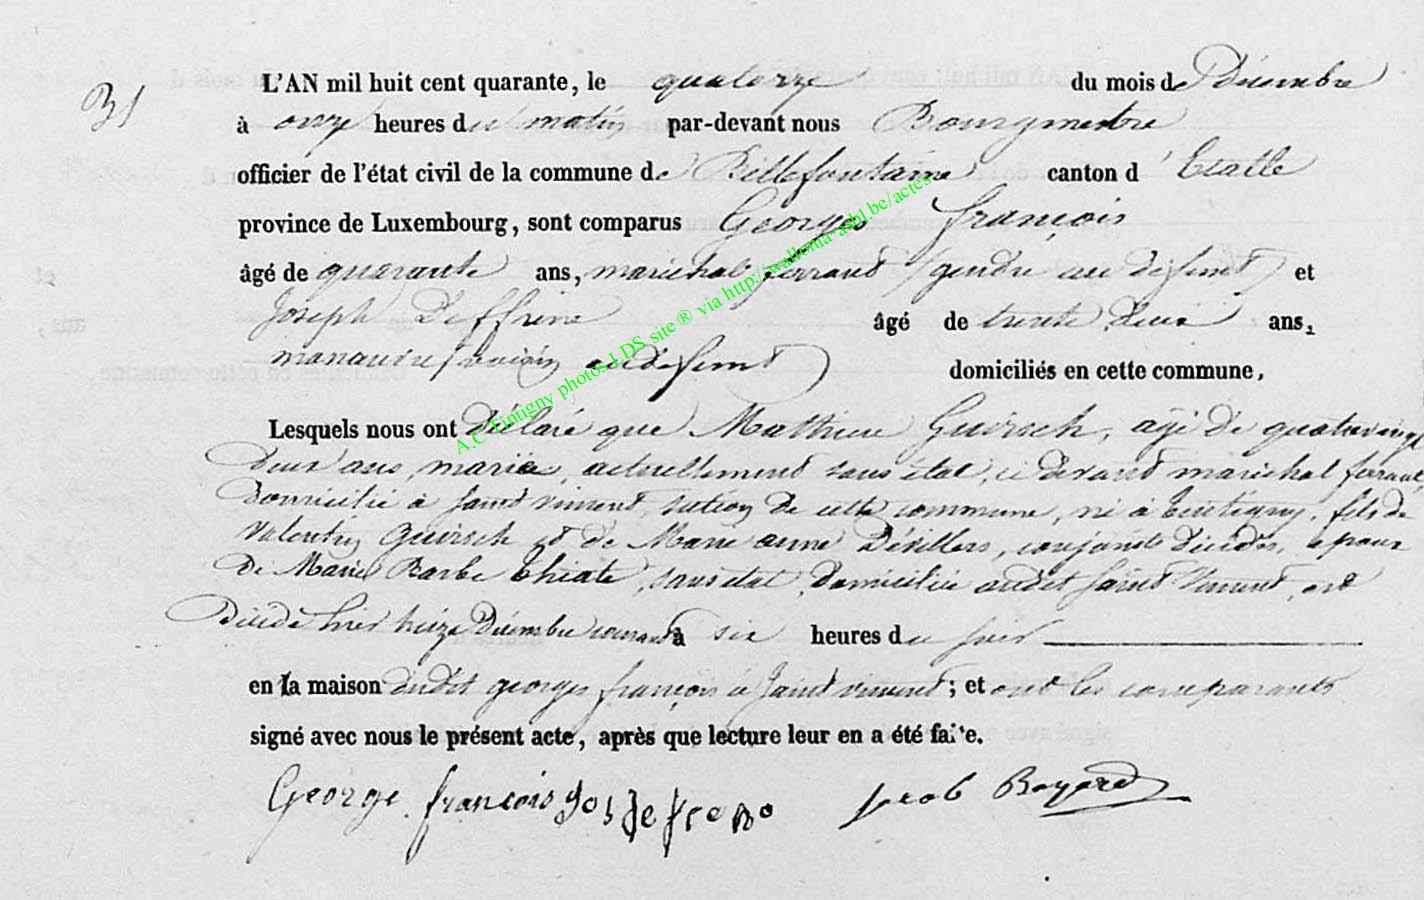 31
L'AN mil huit cent quarante, le quatorze du mois de Décembre
à onze heures du matin par-devant nous Bourgmestre
officier de l'état civil de la commune de Bellefontaine canton d'Etalle
province de Luxembourg, sont comparus Georges françois
âgé de quarante ans, marichal ferrant (gendre au défunt) et
Joseph Deffrene âgé de trente deux ans,
manœuvre (voisin audéfunt) domiciliés en cette commune,
Lesquels nous ont déclaré que Mathieu Guirsch, agé de quatrevingt
deux ans, marié, actuellement sans état, ci devant maréchal ferrant,
domicilié à Saint vincent, section de cette commune, né à tintigny, fils de
Valentin Guirsch et de Marie anne Devillers, conjoints décédés, epoux
de Marie Barbe thiate, sans etat, domiciliée audit Saint Vincent, est
décédé hier treize Décembre courant à six heures du soir
en la maison dudit georges françois à Saint vincent; et ont les comparants
signé avec nous le présent acte, après que lecture leur en a été faite.
George françois Jos Jacob Boyard
A.C. Tintigny photos LDS site ® via http://wallonia-asbl.be/actes